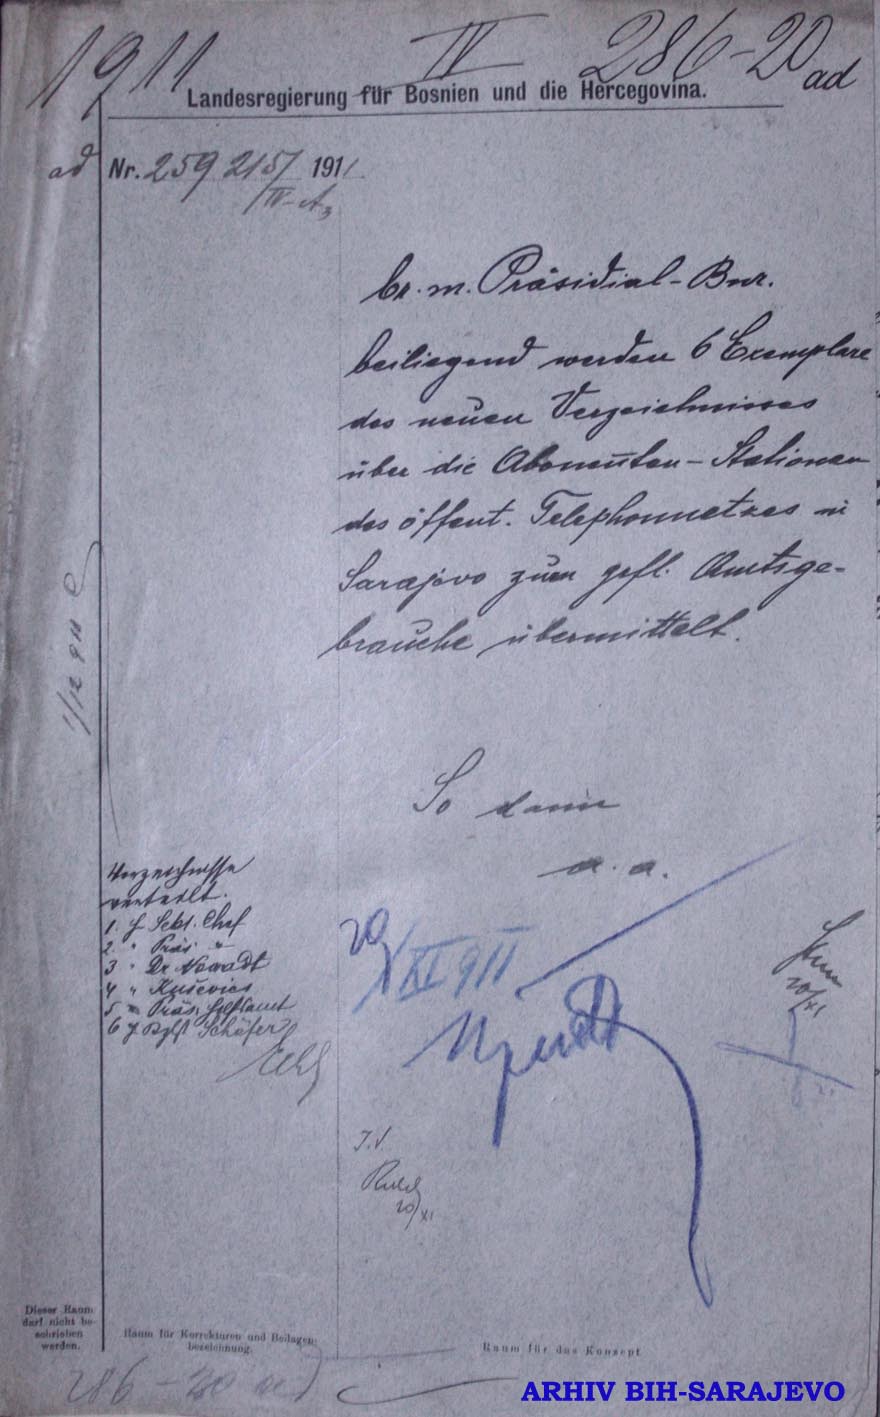 1911 IV 286-20 ad
Landesregierung für Bosnien und die Hercegovina.
ad Nr. 259 215/ 1911
IV-A3
br. m. Präsidial-Bur.
beiliegend werden 6 Exemplare
des neuen Verzeichnisses
über die Abonenten-Stationen
des öffent. Telephonnetzes in
Sarajevo zum gefl. Amtsge-
brauche übermittelt.
So dann
a. a.
1/12 911
Verzeichnisse
verteilt.
1. H Sekt. Chef
2. " Präs "
3 " Dr Nowadt
4 " Kušević
5 " Präs. Hilfsamt
6 Schäfer
20/XI 911
20/XI
I.V
20/XI
Dieser Raum
darf nicht be-
schrieben
werden.
Raum für Korrekturen und Beilagen-
bezeichnung.
Raum für das Konzept
286-20 ad
ARHIV BIH-SARAJEVO